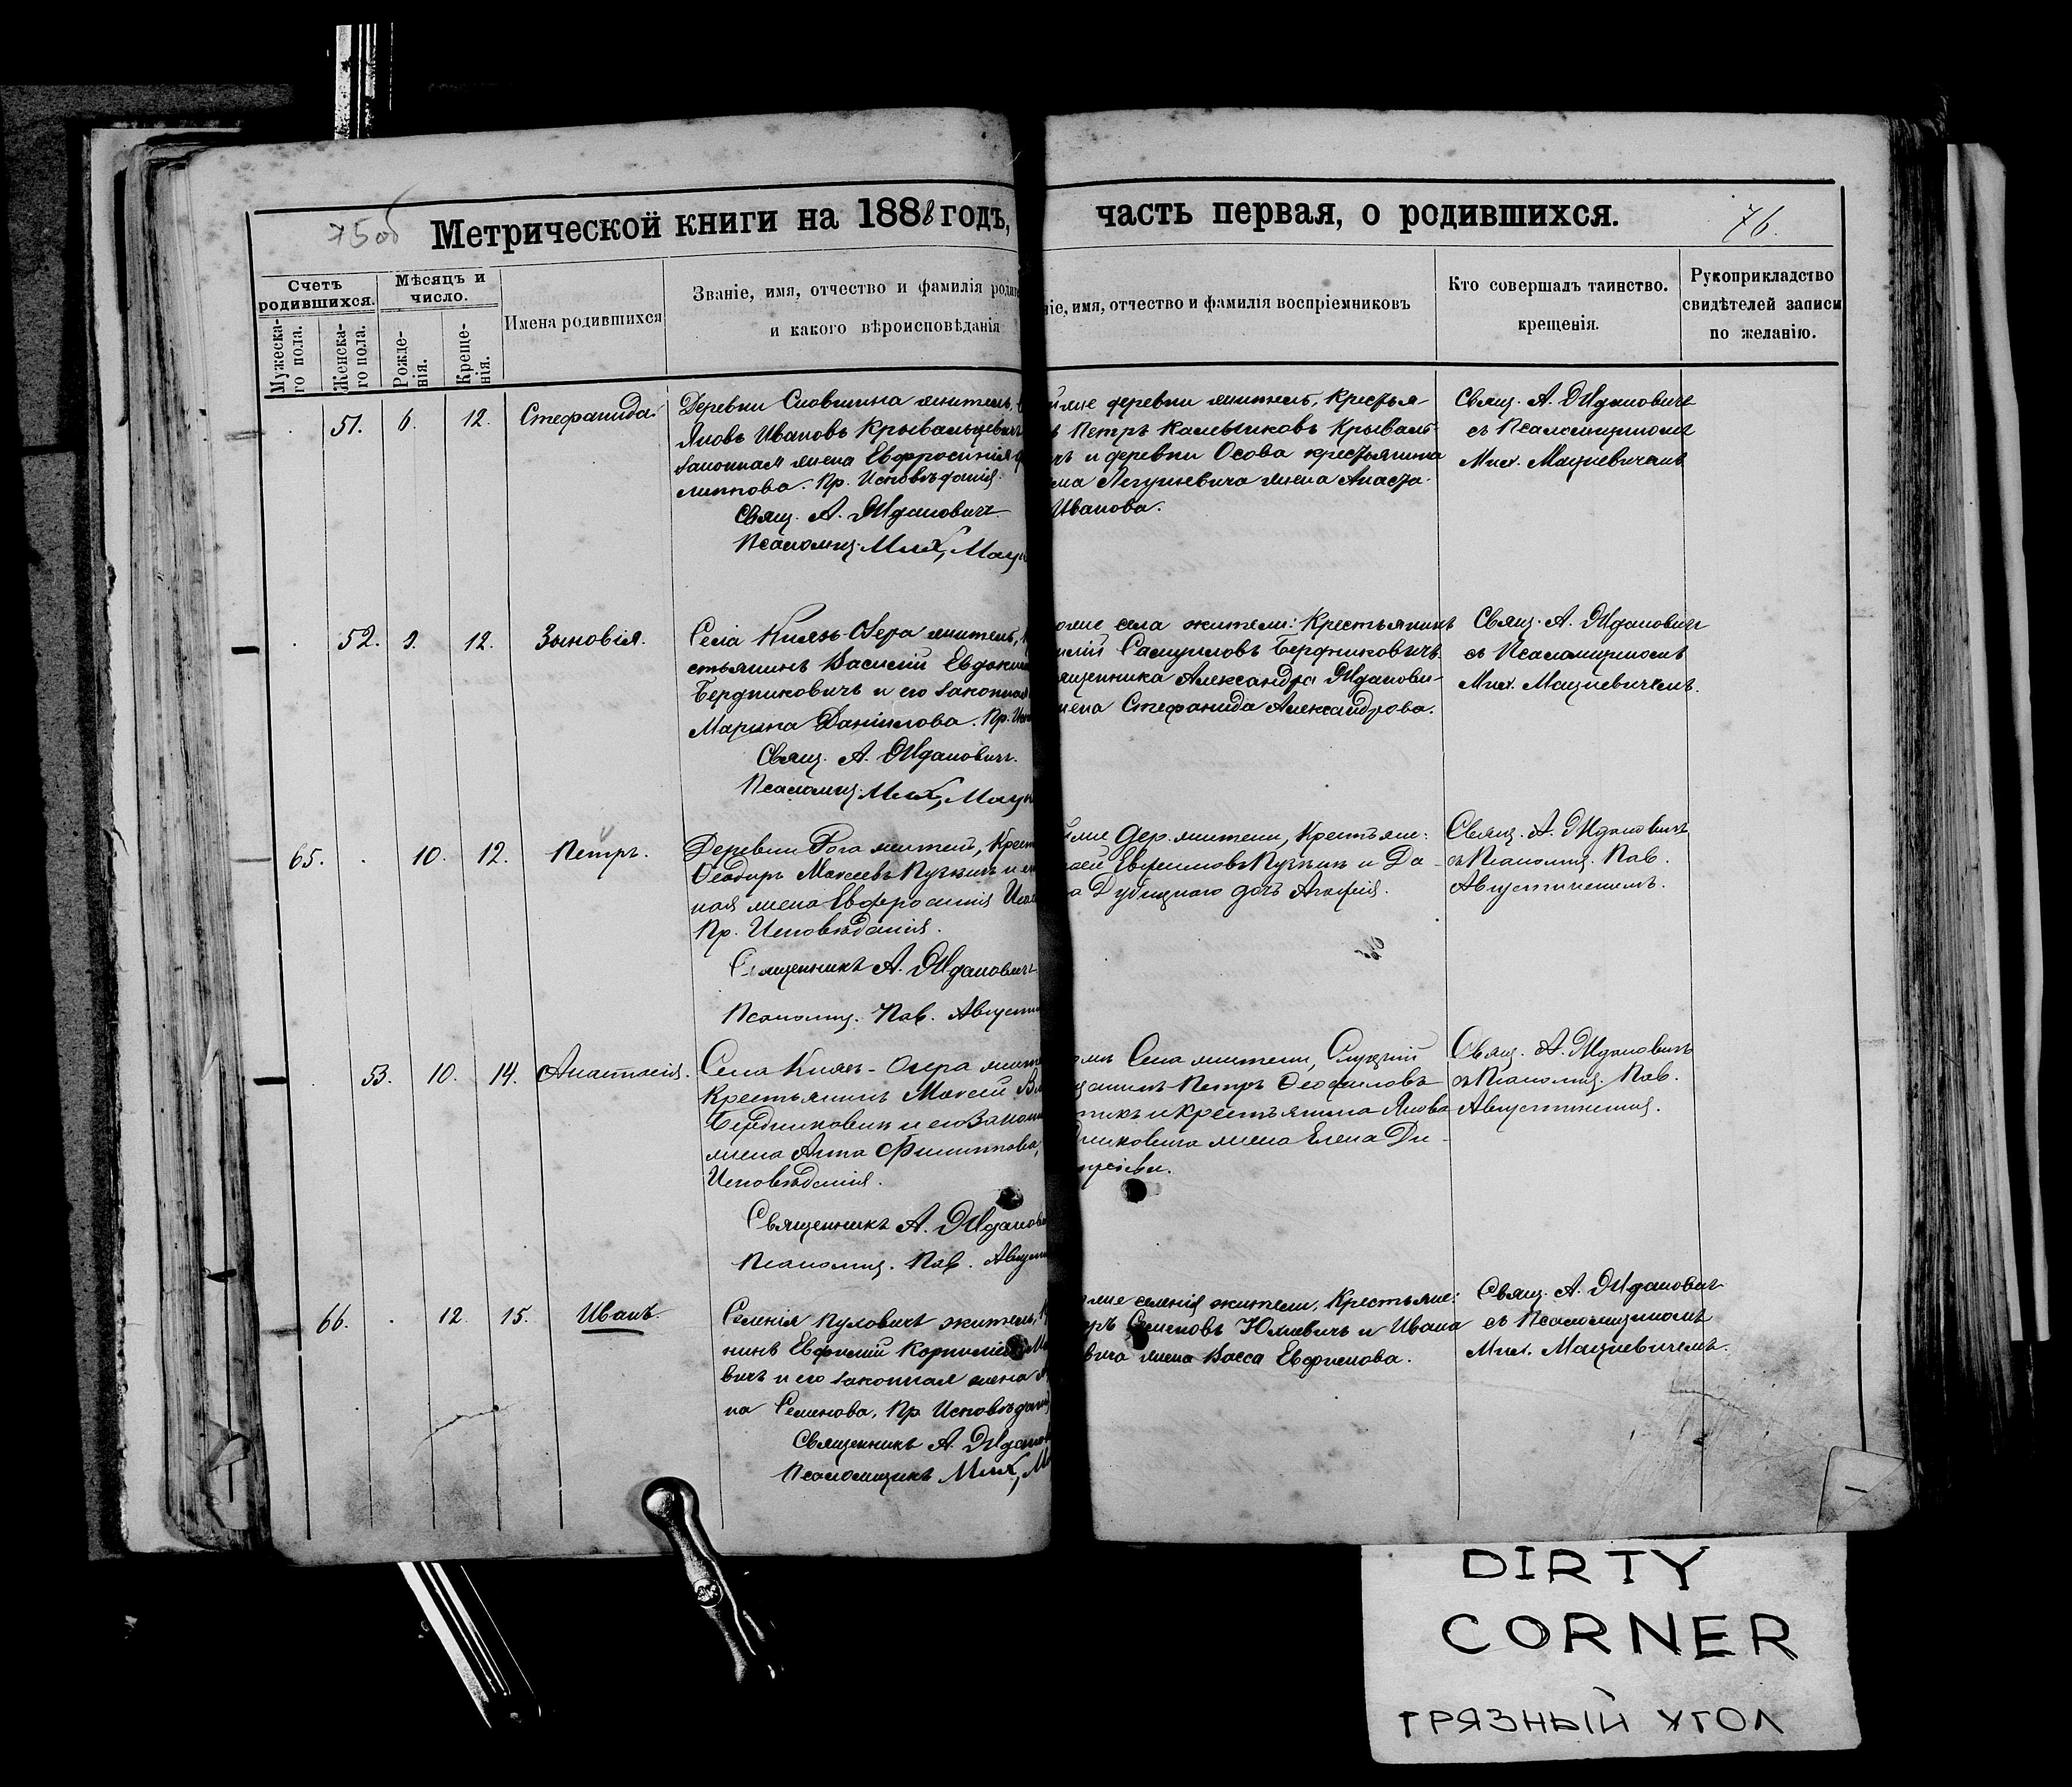 75об
Метрической книги на 1888 годъ,
часть первая, о родившихся.
76.
Счетъ родившихся.
Мужеска-
го пола.
Женска-
го пола.
Мѣсяцъ и
число.
Рожде-
нія.
Креще-
нія.
Имена родившихся
Званіе, имя, отчество и фамилія родите
и какого вѣроисповѣданія
ніе, имя, отчество и фамилія воспріемниковъ
Кто совершалъ таинство.
крещенія.
Рукоприкладство
свидѣтелей записи
по желанію.
51. 6. 12. Стефанида
Деревни житель,
Яковъ Ивановъ Крывальцевичъ
законная жена Евфросинія
липпова. Пр. Исповѣданія.
Свящ. А. Ждановичъ
Псаломщ. Мих. Мац
деревни жители, Крестья-
Петръ Крываль-
и деревни Осова крестьянина
жена Анаста-
Иванова.
Свящ. А. Ждановичъ
съ Псаломщикомъ
Мих. Мациевичемъ
52. 9. 12. Зыновія.
Села Князь-Озера житель,
стьянинъ Василій Евдоким
Бердниковичъ и его законная
Марина Даніилова. Пр. Исп
Свящ. А. Ждановичъ.
Псаломщ. Мих. Мац
села жители: Крестьянинъ
Самуиловъ Бердниковичъ
ященника Александра Жданови-
жена Стефанида Александрова.
Свящ. А. Ждановичъ
съ Псаломщикомъ
Мих. Мациевичемъ.
65. 10. 12. Петръ.
Деревни Рога жители, Крест
Ѳеодоръ Моисеевъ Пузкинъ и е
ная жена Евфросинія
Пр. Исповѣданія.
Священникъ А. Ждановичъ
Псаломщ. Пав. Августи
дер. жители, Крестьян:
Евфимовъ Пузкинъ и Да-
Дубицкаго дочь Агафія.
Свящ. А. Ждановичъ
съ Псаломщ. Пав.
Августиновичемъ.
53. 10. 14. Анастасія.
Села Князь-Озера жите
Крестьянинъ Моисей
Бердниковичъ и его закон
жена Анна Филиппова,
Исповѣданія.
Священникъ А. Жданови
Псаломщ. Пав. Август
Села жители, Слуцкій
щанинъ Петръ Ѳеофиловъ
и крестьянина Якова
дниковича жена Елена Ди-
Свящ. А. Ждановичъ
съ Псаломщ. Пав.
66. 12 15. Иванъ.
Селенія Пуховичъ житель,
нинъ Евфимій Корнилі
вичъ и его законная жена
на Семенова, Пр Исповѣдані
Священникъ А. Жданов
Псаломщикъ Мих. М
селенія жители, Крестьяне:
Семеновъ Юхневичъ и Ивана
вича жена Васса Евфимова.
Свящ. А. Ждановичъ
съ Псаломщикомъ
Мих. Мациевичемъ.
DIRTY
CORNER
ГРЯЗНЫЙ УГОЛ